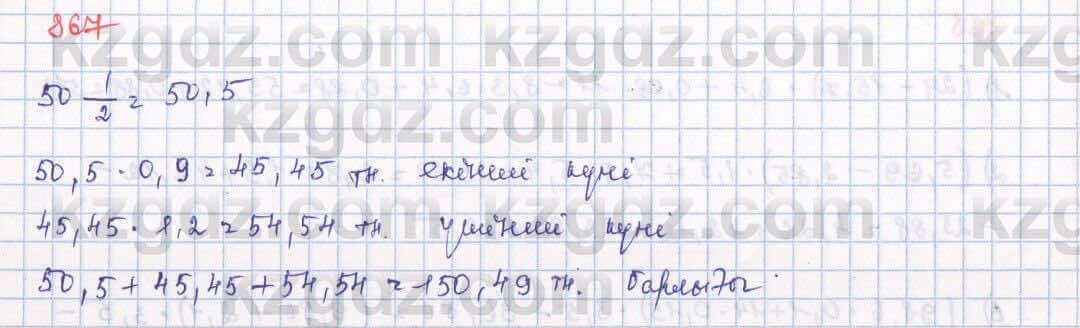 867
kzgdz.com kzgdz.com
50 1/2 = 50,5
kzgdz.com
50,5 · 0,9 = 45,45 тн. екінші күні
kzgdz.com kzgdz.com
45,45 · 1,2 = 54,54 тн. үшінші күні
50,5 + 45,45 + 54,54 = 150,49 тн. барлығы
kzgdz.com